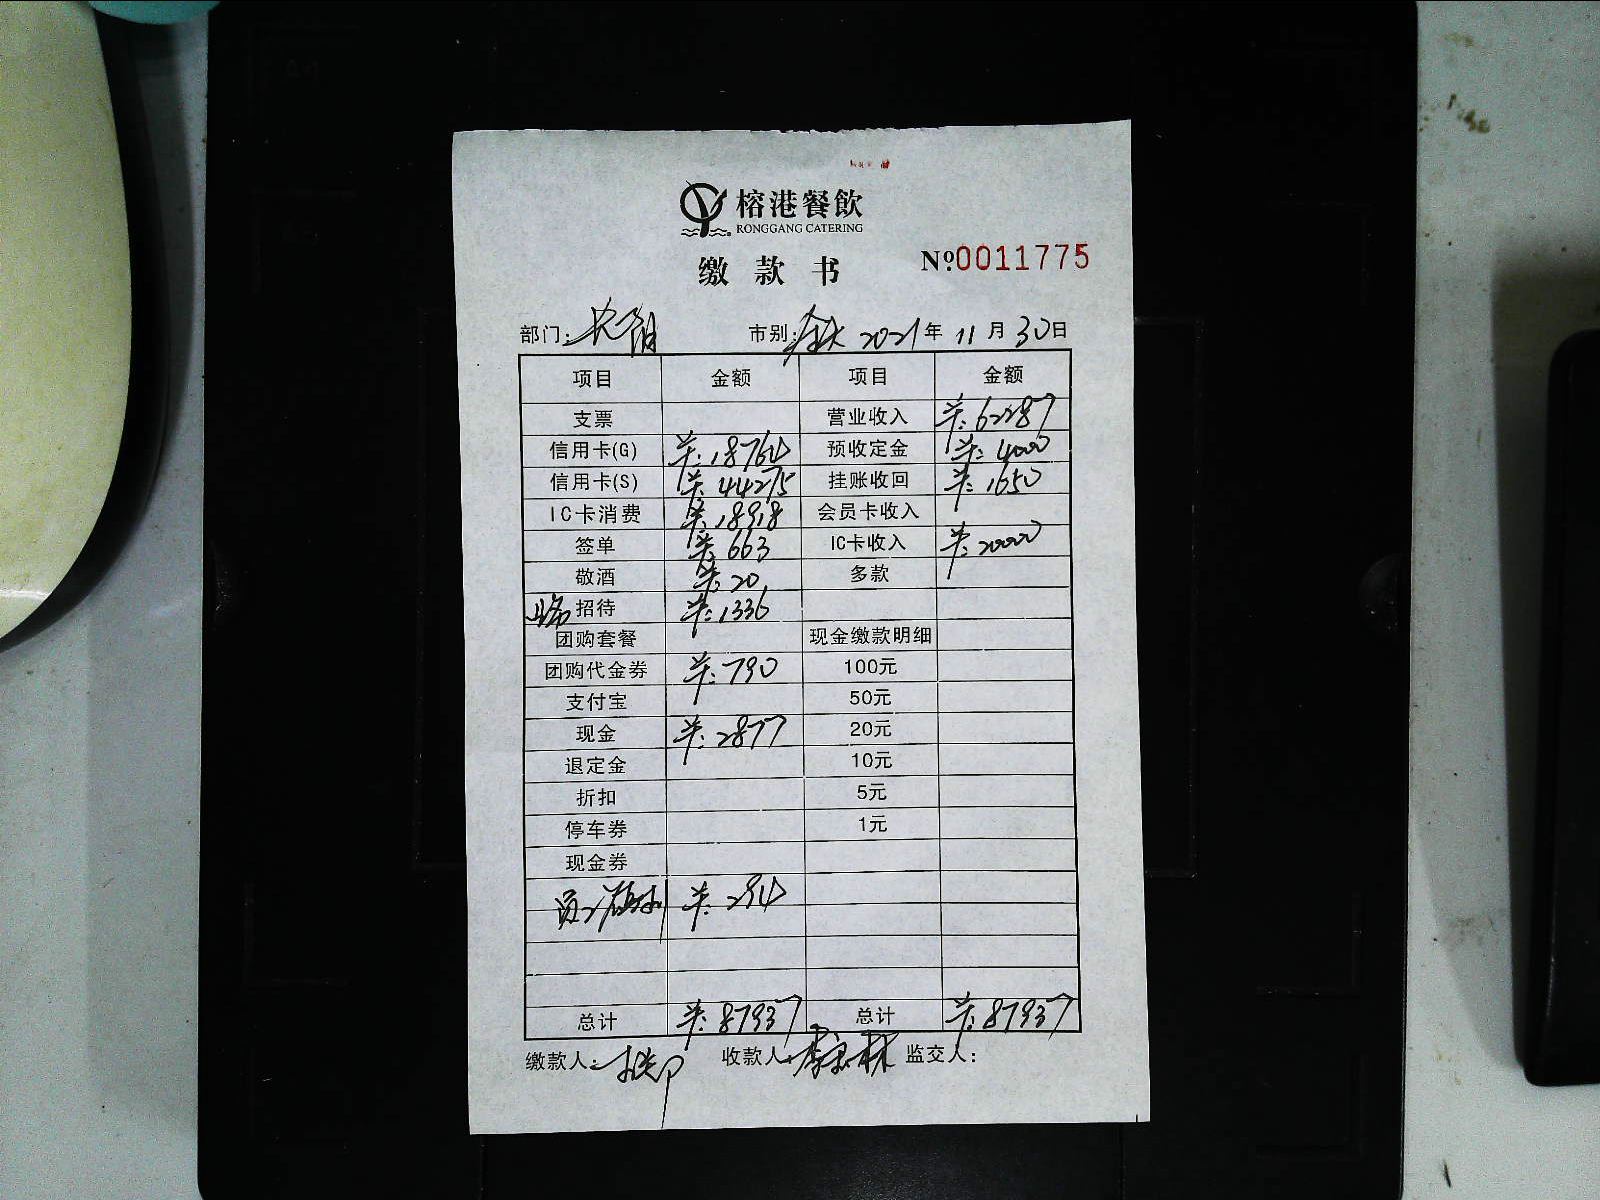 榕港餐飲
RONGGANG CATERING
缴款书 №0011775
部门: 市别:全天 2021年11月30日
项目 金额 项目 金额
支票 营业收入 ¥:62287
信用卡(G) ¥:18764 预收定金 ¥:4000
信用卡(S) ¥:44275 挂账收回 ¥:1650
IC卡消费 ¥:18918 会员卡收入
签单 ¥:663 IC卡收入 ¥:20000
敬酒 ¥:20 多款
招待 ¥:1336
团购套餐 现金缴款明细
团购代金券 ¥:790 100元
支付宝 50元
现金 ¥:2877 20元
退定金 10元
折扣 5元
停车券 1元
现金券
¥:294
总计 ¥:87937 总计 ¥:87937
缴款人: 收款人: 监交人: